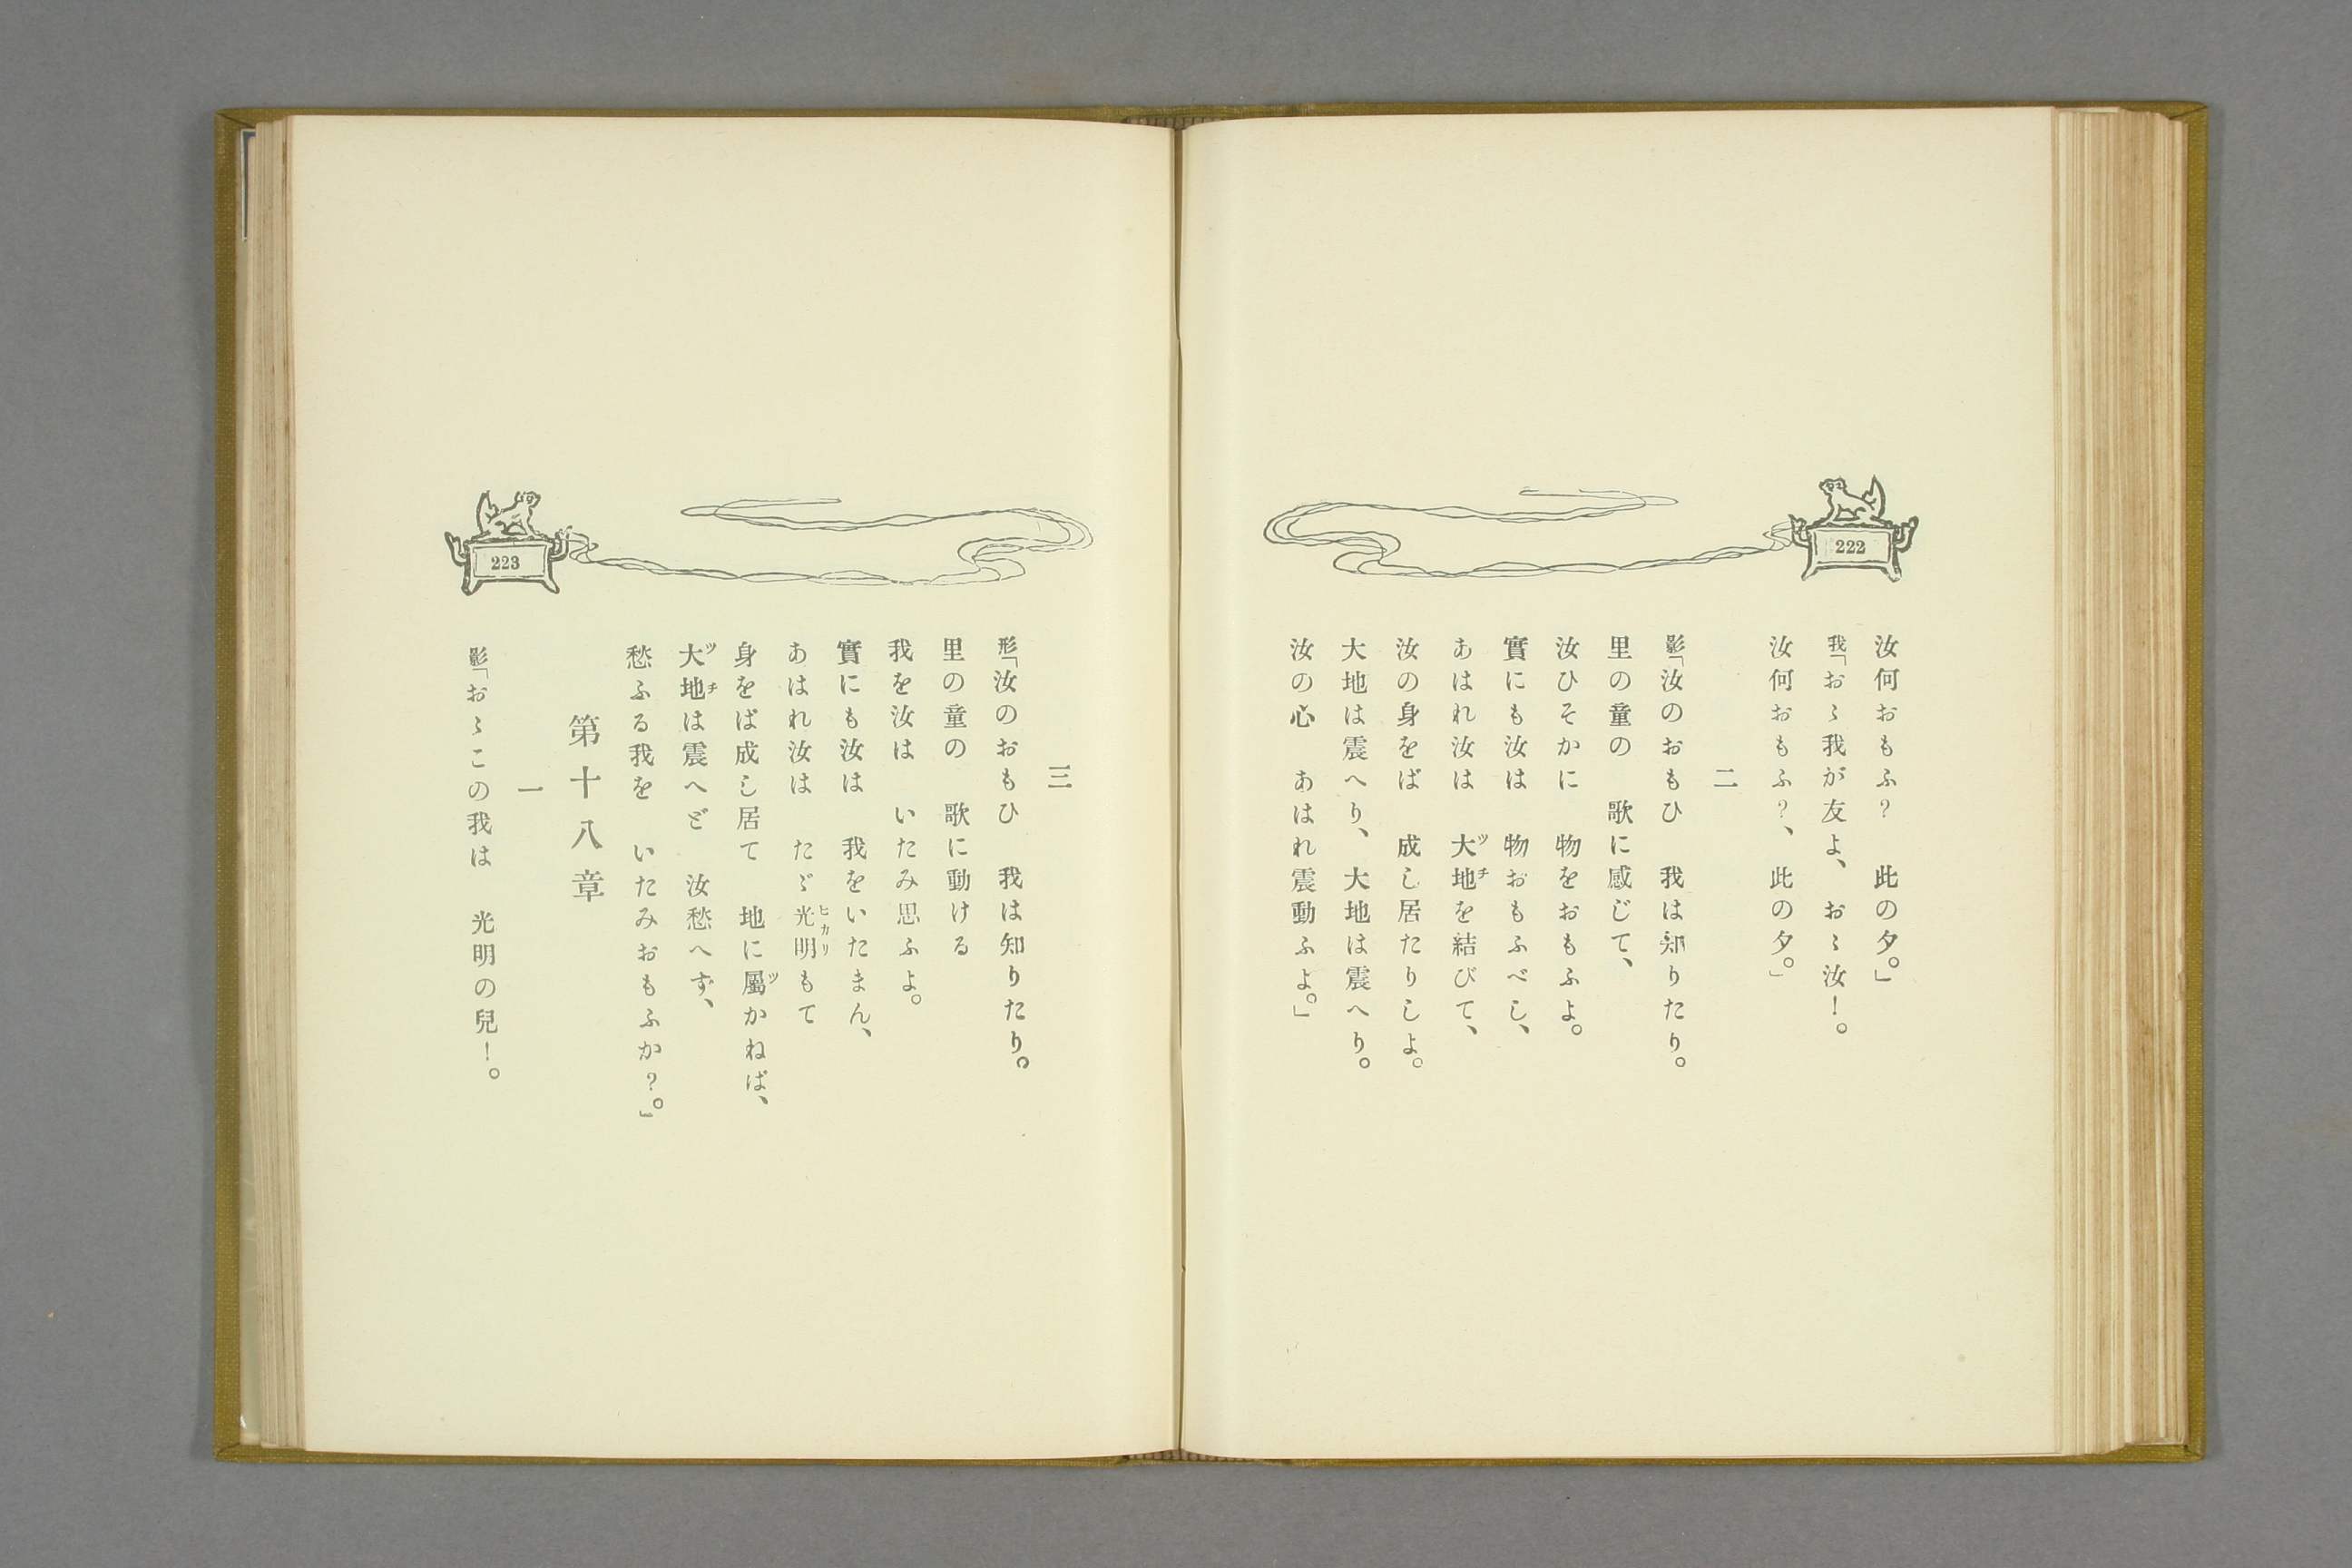 222
汝何おもふ?　此の夕。」
我「おゝ我が友よ、おゝ汝!。
汝何おもふ?、此の夕。」
二
影「汝のおもひ　我は知りたり。
里の童の　歌に感じて、
汝ひそかに　物をおもふよ。
實にも汝は　物おもふべし、
あはれ汝は　大地ツチを結びて、
汝の身をば　成し居たりしよ。
大地は震へり、大地は震へり。
汝の心　あはれ震動ふよ。」
223
三
形「汝のおもひ　我は知りたり。
里の童の　歌に動ける
我を汝は　いたみ思ふよ。
實にも汝は　我をいたまん、
あはれ汝は　たゞ光明ヒカリもて
身をば成し居て　地に屬ツかねば、
大地ツチは震へど　汝愁へず、
愁ふる我を　いたみおもふか?。」
第十八章
一
影「おゝこの我は　光明の兒!。